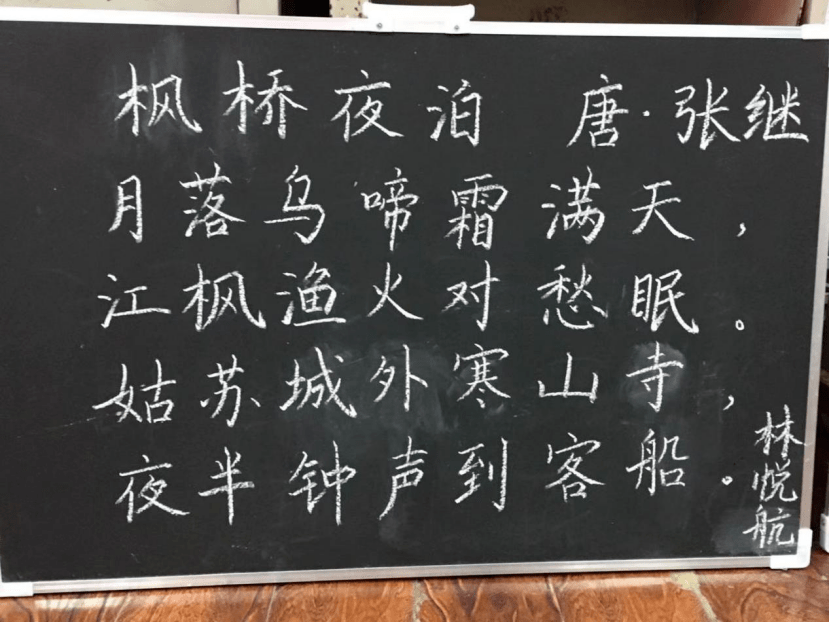 枫桥夜泊 唐·张继
月落乌啼霜满天，
江枫渔火对愁眠。
姑苏城外寒山寺，
夜半钟声到客船。
林悦航